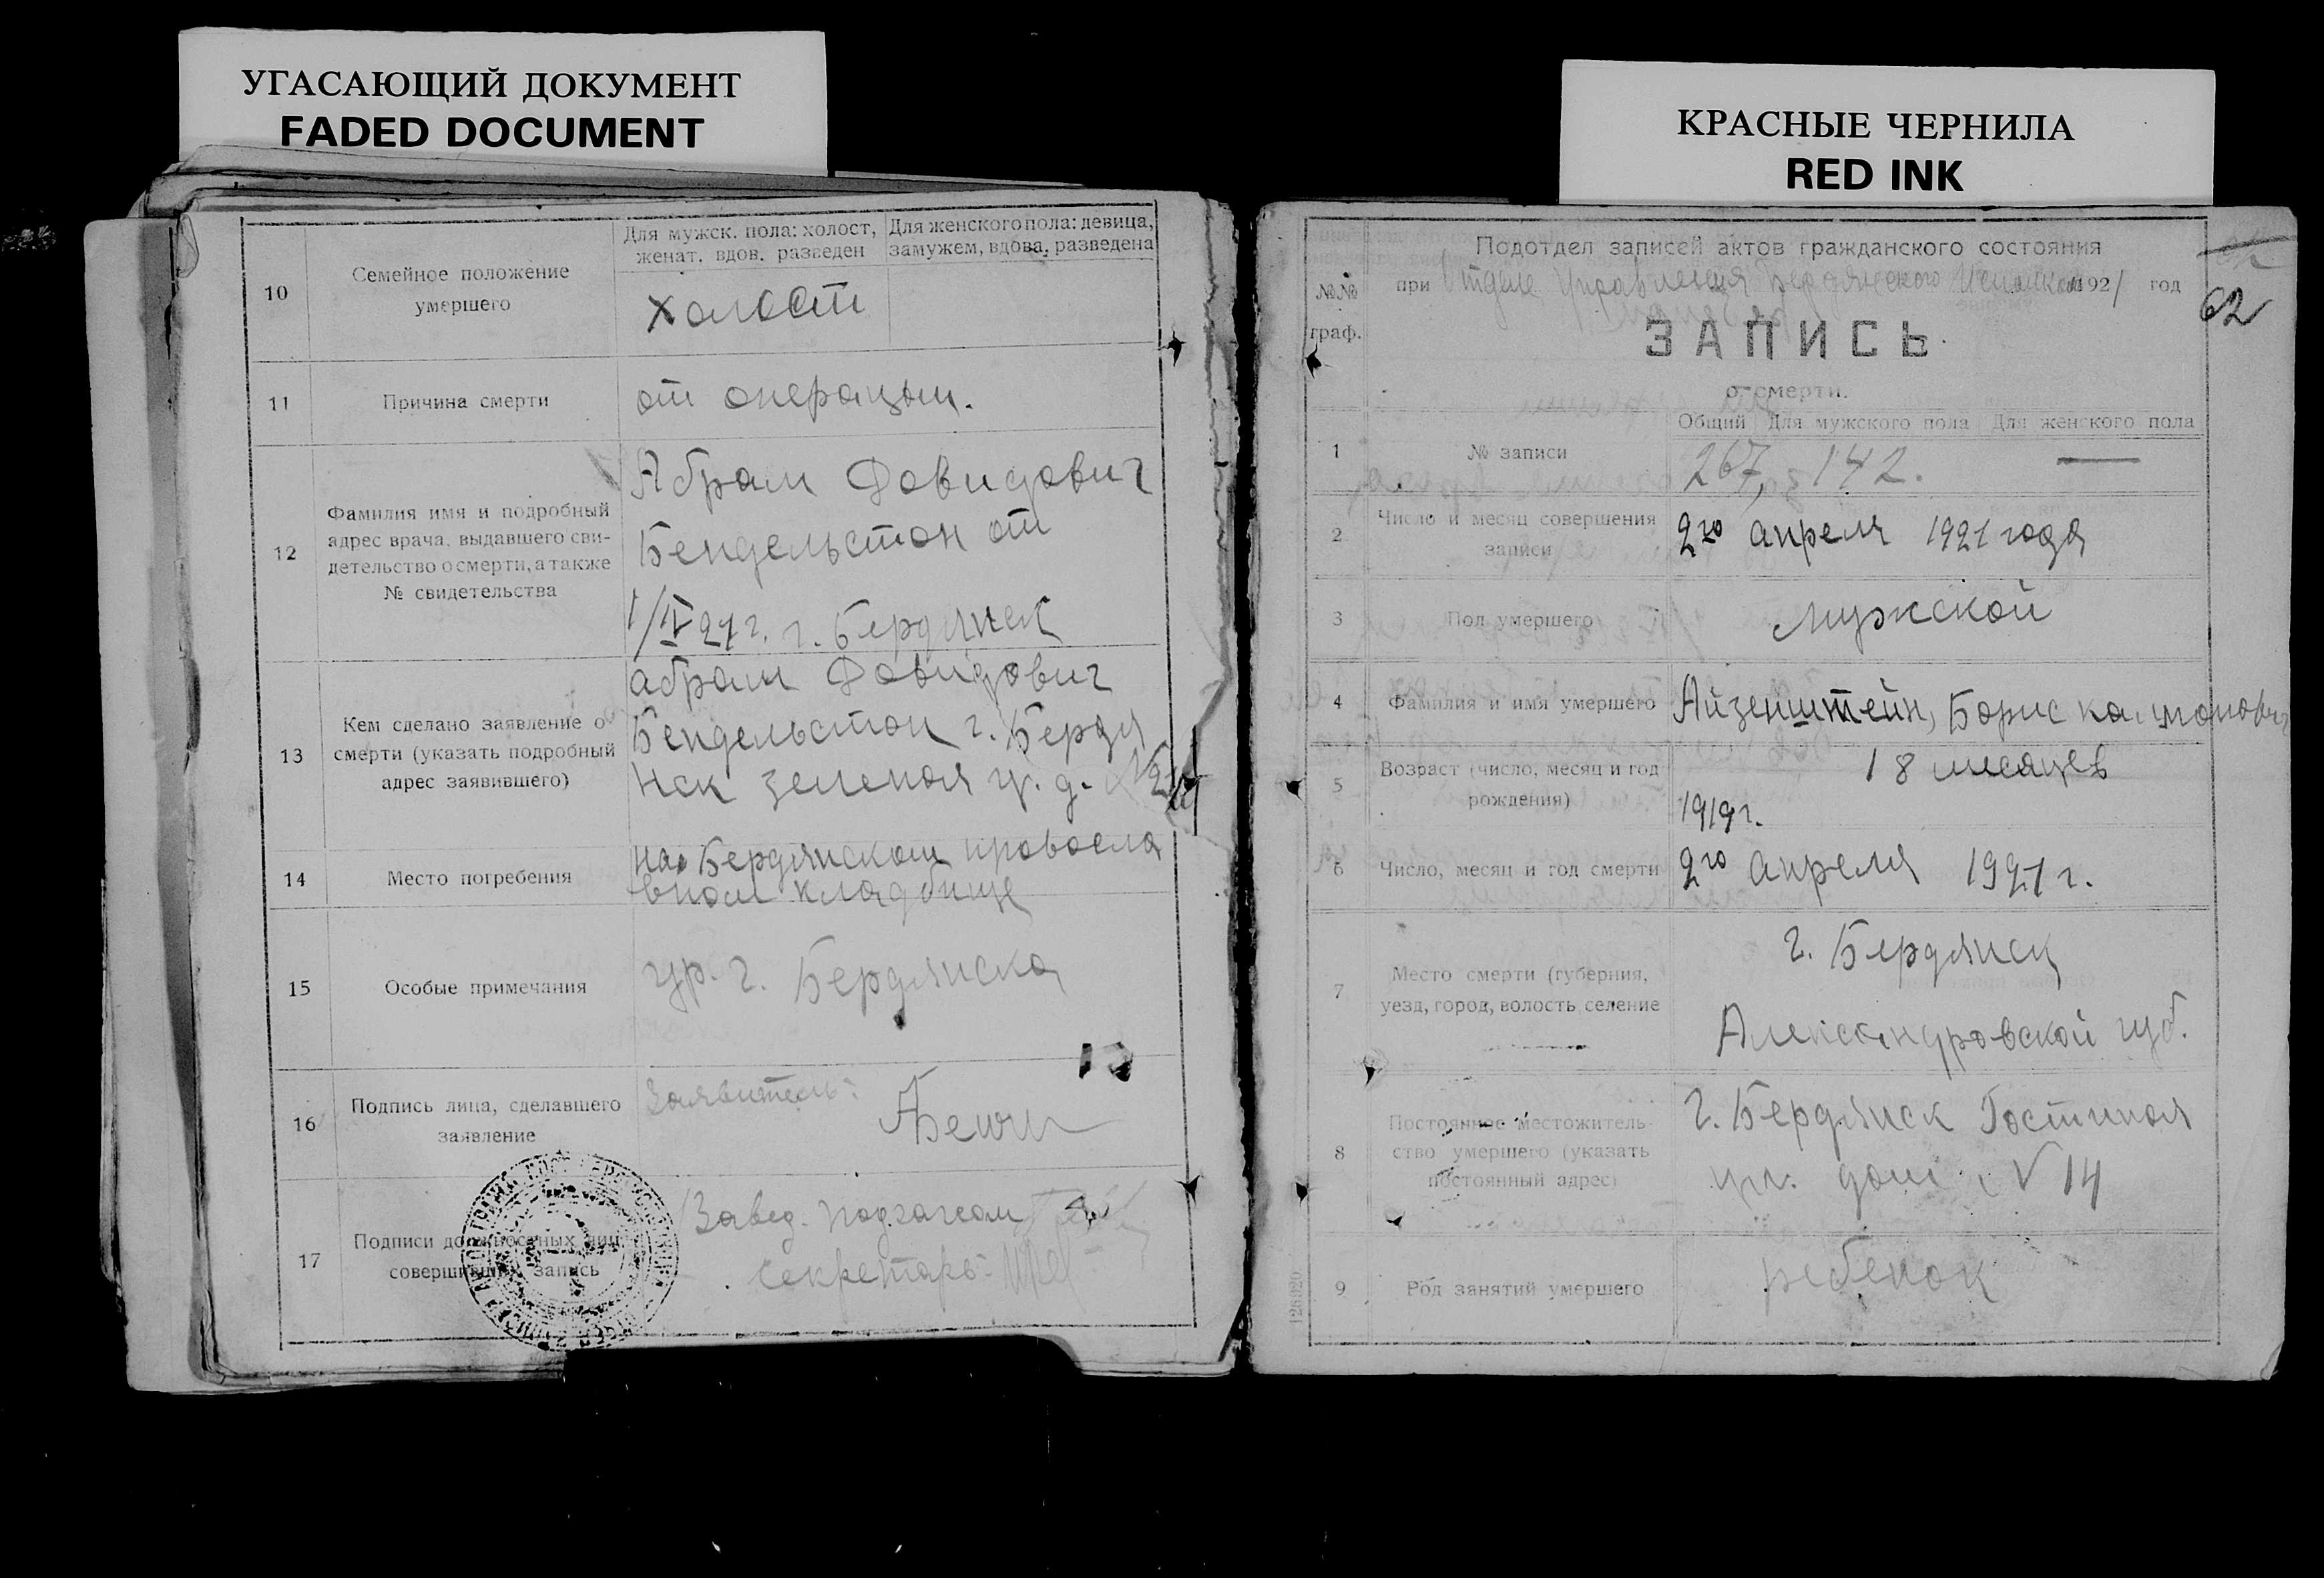 УГАСАЮЩИЙ ДОКУМЕНТ
FADED DOCUMENT
10
Семейное положение
умершего
Для мужск. пола: холост,
женат. вдов. разведен
Для женского пола: девица,
замужем, вдова, разведена
холост
11
Причина смерти
от операцыи.
12
Фамилия имя и подробный
адрес врача, выдавшего сви-
детельство о смерти, а также
№ свидетельства
Абрам Довидович
Бендельстон от
1/IV 21 г. г. Бердянск
13
Кем сделано заявление о
смерти (указать подробный
адрес заявившего)
Абрам Довидович
Бендельстон г. Бердя
нск зеленая ул. д.
14
Место погребения
на Бердянском провосла
вном кладбище
15
Особые примечания
гр. г. Бердянска
16
Подпись лица, сделавшего
заявление
Заявитель:
17
Подписи должностных лиц
совершивших запись
Завед. подзагсом
Секретарь
КРАСНЫЕ ЧЕРНИЛА
RED INK
62
№№
граф.
Подотдел записей актов гражданского состояния
при Отделе Управления Бердянского 1921 год
ЗАПИСЬ
о смерти.
1
№ записи
Общий Для мужского пола Для женского пола
267, 142. —
2
Число и месяц совершения
записи
2го апреля 1921 года
3
Пол умершего
мужской
4
Фамилия и имя умершего
Айзенштейн, Борис Калмонович
5
Возраст (число, месяц и год
рождения)
18 месяцев
1919 г.
6
Число, месяц и год смерти
2го апреля 1921 г.
7
Место смерти (губерния,
уезд, город, волость, селение
г. Бердянск
Александровской губ.
8
Постоянное местожитель-
ство умершего (указать
постоянный адрес)
г. Бердянск Гостиная
ул. дом № 14
9
Род занятий умершего
ребенок